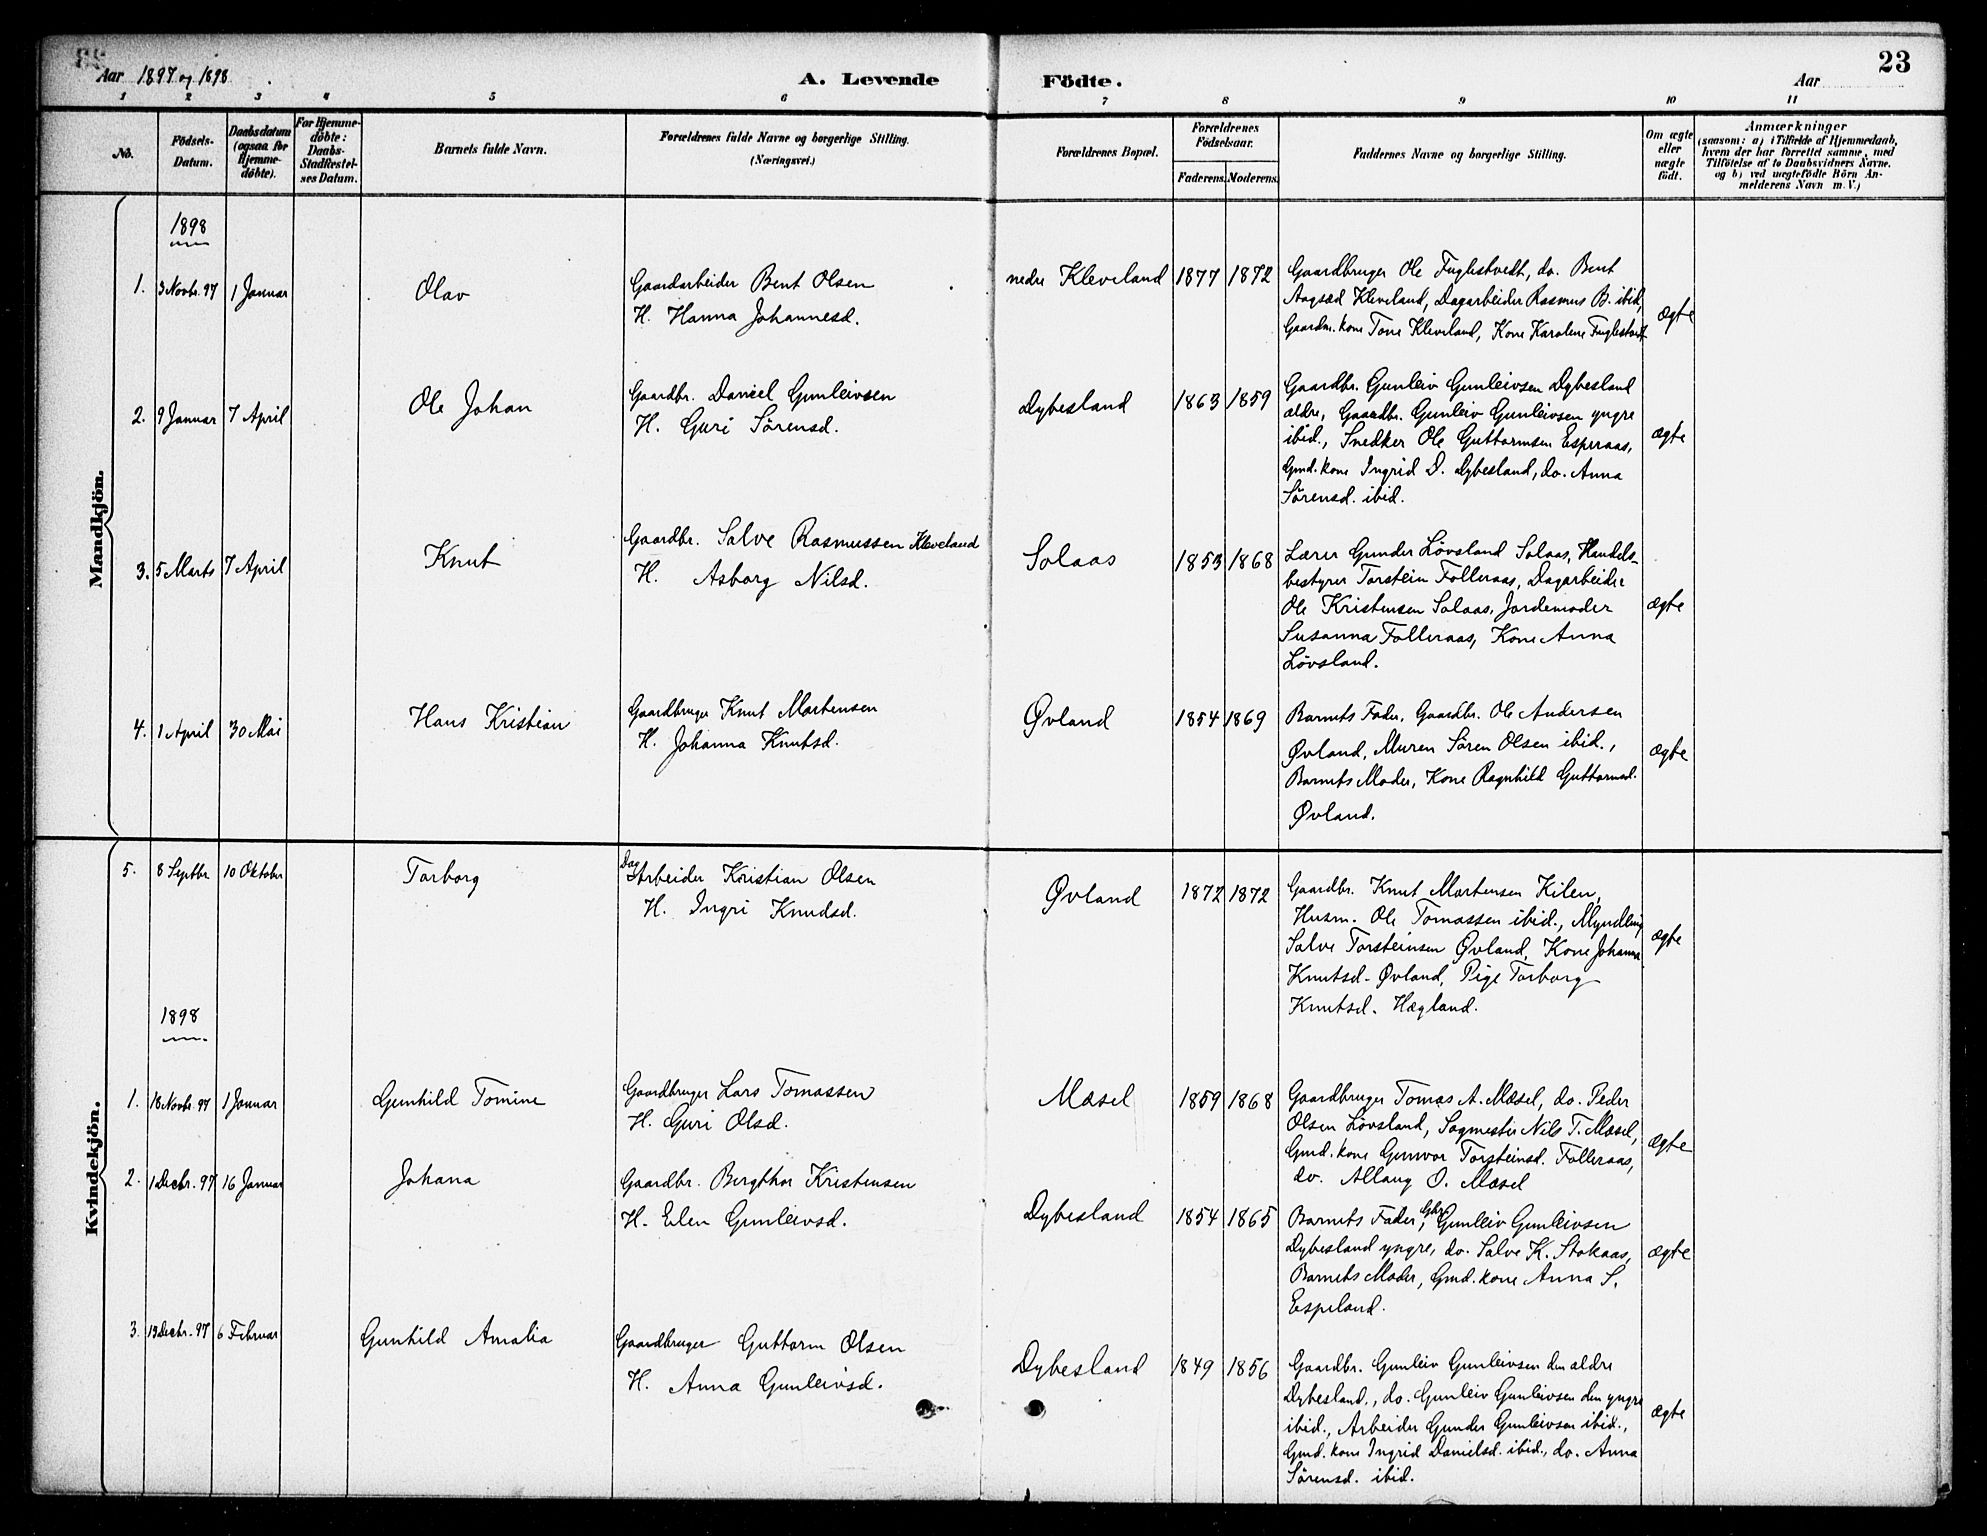 Aar 1897 og 1898.
A. Levende Födte.
Aar
23
1 2 3 4 5 6 7 8 9 10 11
No.
Födsels-Datum.
Daabsdatum (ogsaa for Hjemme-döbte).
For Hjemme-döbte: Daabs-Stadfæstel-ses Datum.
Barnets fulde Navn.
Forældrenes fulde Navne og borgerlige Stilling.
(Næringsvei.)
Forældrenes Bopæl.
Forældrenes Födselsaar.
Faderens. Moderens.
Faddernes Navne og borgerlige Stilling.
Om ægte eller uægte födt.
Anmærkninger
(saasom: a) i Tilfælde af Hjemmedaab,
hvem der har forrettet samme, med
Tilföielse af to Daabsvidners Navne.
og b) ved uægtefödte Börn An-
melderens Navn m. V.)
Mandkjön.
1898
1. 3 Novbr. 97 1 Januar Olav Gaardarbeider Bent Olsen nedre Kleveland 1877 1872 Gaardbruger Ole Fuglestvedt, do. Bent
H. Hanna Johannesd. Aagsæd Kleveland, Dagarbeider Rasmus B. ibid, ægte
Gaardm. kone Tone Kleveland, Kone Karolene Fuglestvedt
2. 9 Januar 7 April Ole Johan Gaardbr. Daniel Gunleivsen Dybesland 1863 1859 Gaardbr. Gunleiv Gunleivsen Dybesland
H. Guri Sörensd. ældre, Gaardbr. Gunleiv Gunleivsen yngre
ibid., Snedker Ole Guttormsen Esperaas, ægte
Gmd. kone Ingrid D. Dybesland, do. Anna
Sörensd. ibid.
3. 5 Marts 7 April Knut Gaardbr. Salve Rasmussen Kleveland Solaas 1853 1868 Lærer Gunder Lövsland Solaas, Handels-
H. Asborg Nilsd. bestyrer Torstein Folleraas, Dagarbeider
Ole Kristensen Solaas, Jordemoder ægte
Susanna Folleraas, Kone Anna
Lövsland.
4. 1 April 30 Mai Hans Kristian Gaardbruger Knut Mortensen Øvland 1854 1869 Barnets Fader, Gaardbr. Ole Andersen
H. Johanna Knutsd. Øvland, Murer Sören Olsen ibid., ægte
Barnets Moder, Kone Ragnhild Guttormsd.
Øvland.
5. 8 Septbr. 10 Oktober Torborg Dag Arbeider Kristian Olsen Øvland 1872 1872 Gaardbr. Knut Mortensen Kilen,
H. Ingri Knudsd. Husm. Ole Tomassen ibid., Myndling
Salve Torsteinsen Øvland, Kone Johanna ægte
Knutsd. Øvland, Pige Torborg
Knutsd. Hægland.
Kvindekjön.
1898
1. 18 Novbr. 97 1 Januar Gunhild Tomine Gaardbruger Lars Tomassen Mæsel 1859 1868 Gaardbruger Tomas A. Mæsel, do. Peder
H. Guri Olsd. Olsen Lövsland, Sagmester Nils T. Mæsel, ægte
Gmd. kone Gunvor Torsteinsd. Folleraas,
do. Allaug O. Mæsel
2. 1 Decbr. 97 16 Januar Johana Gaardbr. Bergthor Kristensen Dybesland 1854 1865 Barnets Fader, Gbr. Gunleiv Gunleivsen
H. Elen Gunleivsd. Dybesland yngre, do. Salve K. Stokaas, ægte
Barnets Moder, Gmd. kone Anna S.
Espeland.
3. 19 Decbr. 97 6 Februar Gunhild Amalia Gaardbruger Guttorm Olsen Dybesland 1849 1856 Gaardbr. Gunleiv Gunleivsen den ældre
H. Anna Gunleivsd. Dybesland., do. Gunleiv Gunleivsen den yngre
ibid., Arbeider Gunder Gunleivsen ibid., ægte
Gmd. kone Ingrid Danielsd. ibid., do. Anna
Sörensd. ibid.